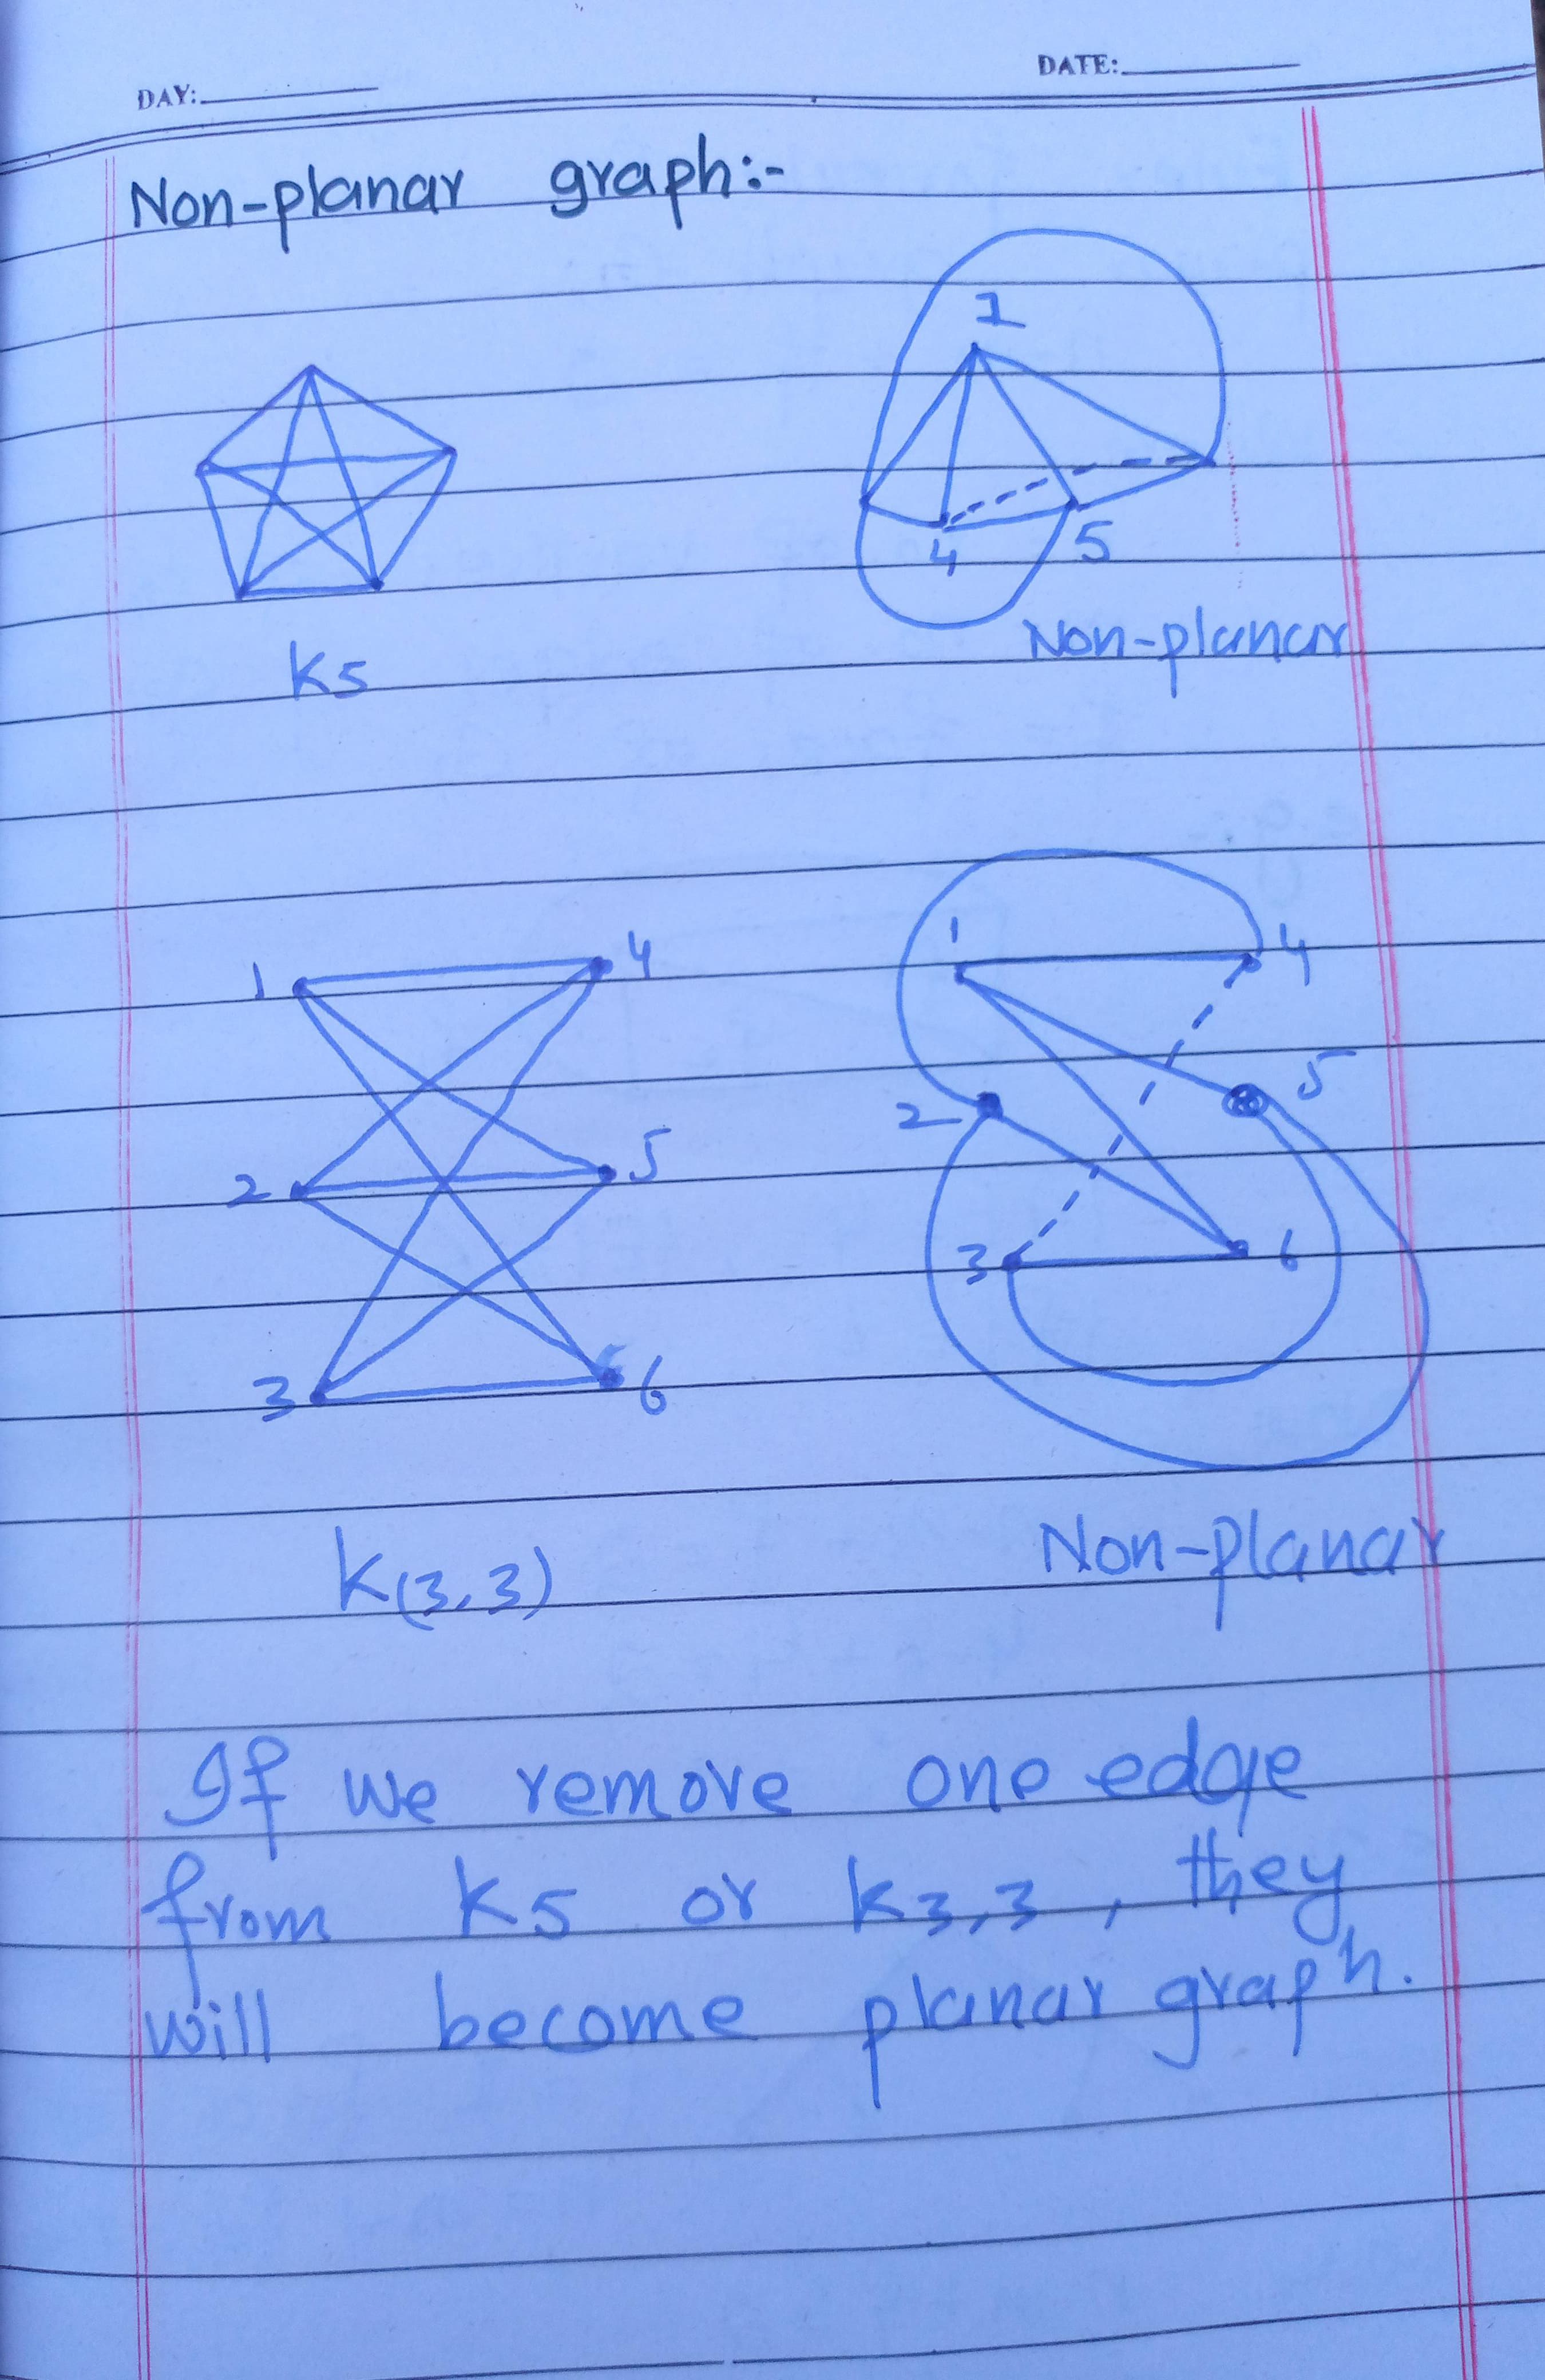 DAY:
DATE:
Non-planar graph:-
1
4 5
K5
Non-planar
1 4
2 5
3 6
1 4
2 5
3 6
K(3,3)
Non-planar
If we remove one edge
from K5 or K3,3, they
will become planar graph.